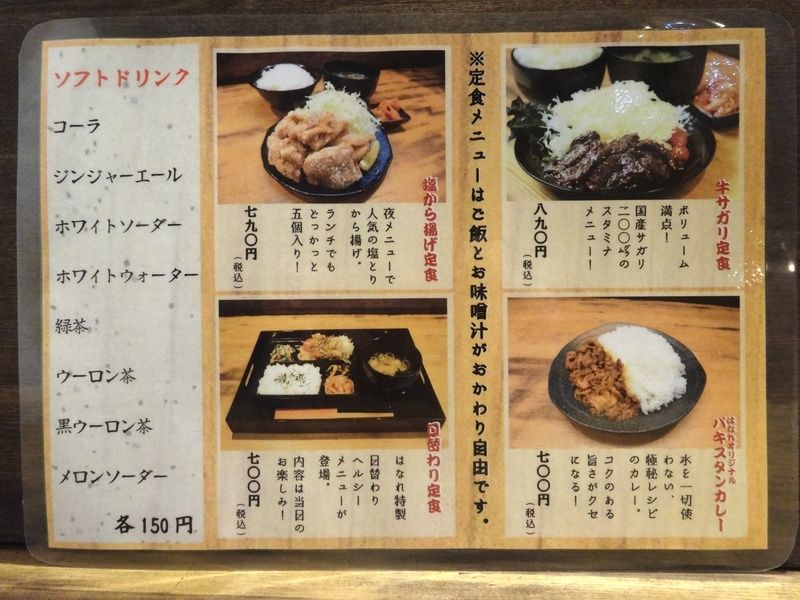 ソフトドリンク
コーラ
ジンジャーエール
ホワイトソーダー
ホワイトウォーター
緑茶
ウーロン茶
黒ウーロン茶
メロンソーダー
各150円
※定食メニューはご飯とお味噌汁がおかわり自由です。
牛サガリ定食
ボリューム
満点!
国産サガリ
二〇〇㌘の
スタミナ
メニュー!
八九〇円
(税込)
塩から揚げ定食
夜メニューで
人気の塩とり
から揚げ。
ランチでも
どっかっと
五個入り!
七九〇円
(税込)
はなれオリジナル
パキスタンカレー
水を一切使
わない、
極秘レシピ
のカレー。
コクのある
旨さがクセ
になる!
七〇〇円
(税込)
日替わり定食
はなれ特製
日替わり
ヘルシー
メニューが
登場。
内容は当日の
お楽しみ!
七〇〇円
(税込)